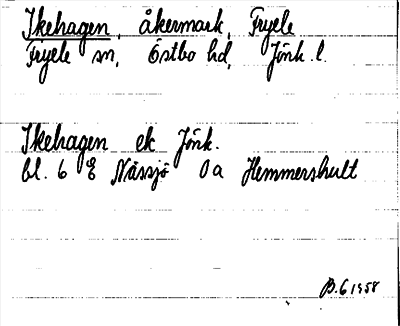 Ikehagen, åkermark, Fryele
Fryele sn, Östbo hd, Jönk. l.
Ikehagen ek Jönk.
bl. 6 E Nässjö 0a Hemmershult
B.G 1958